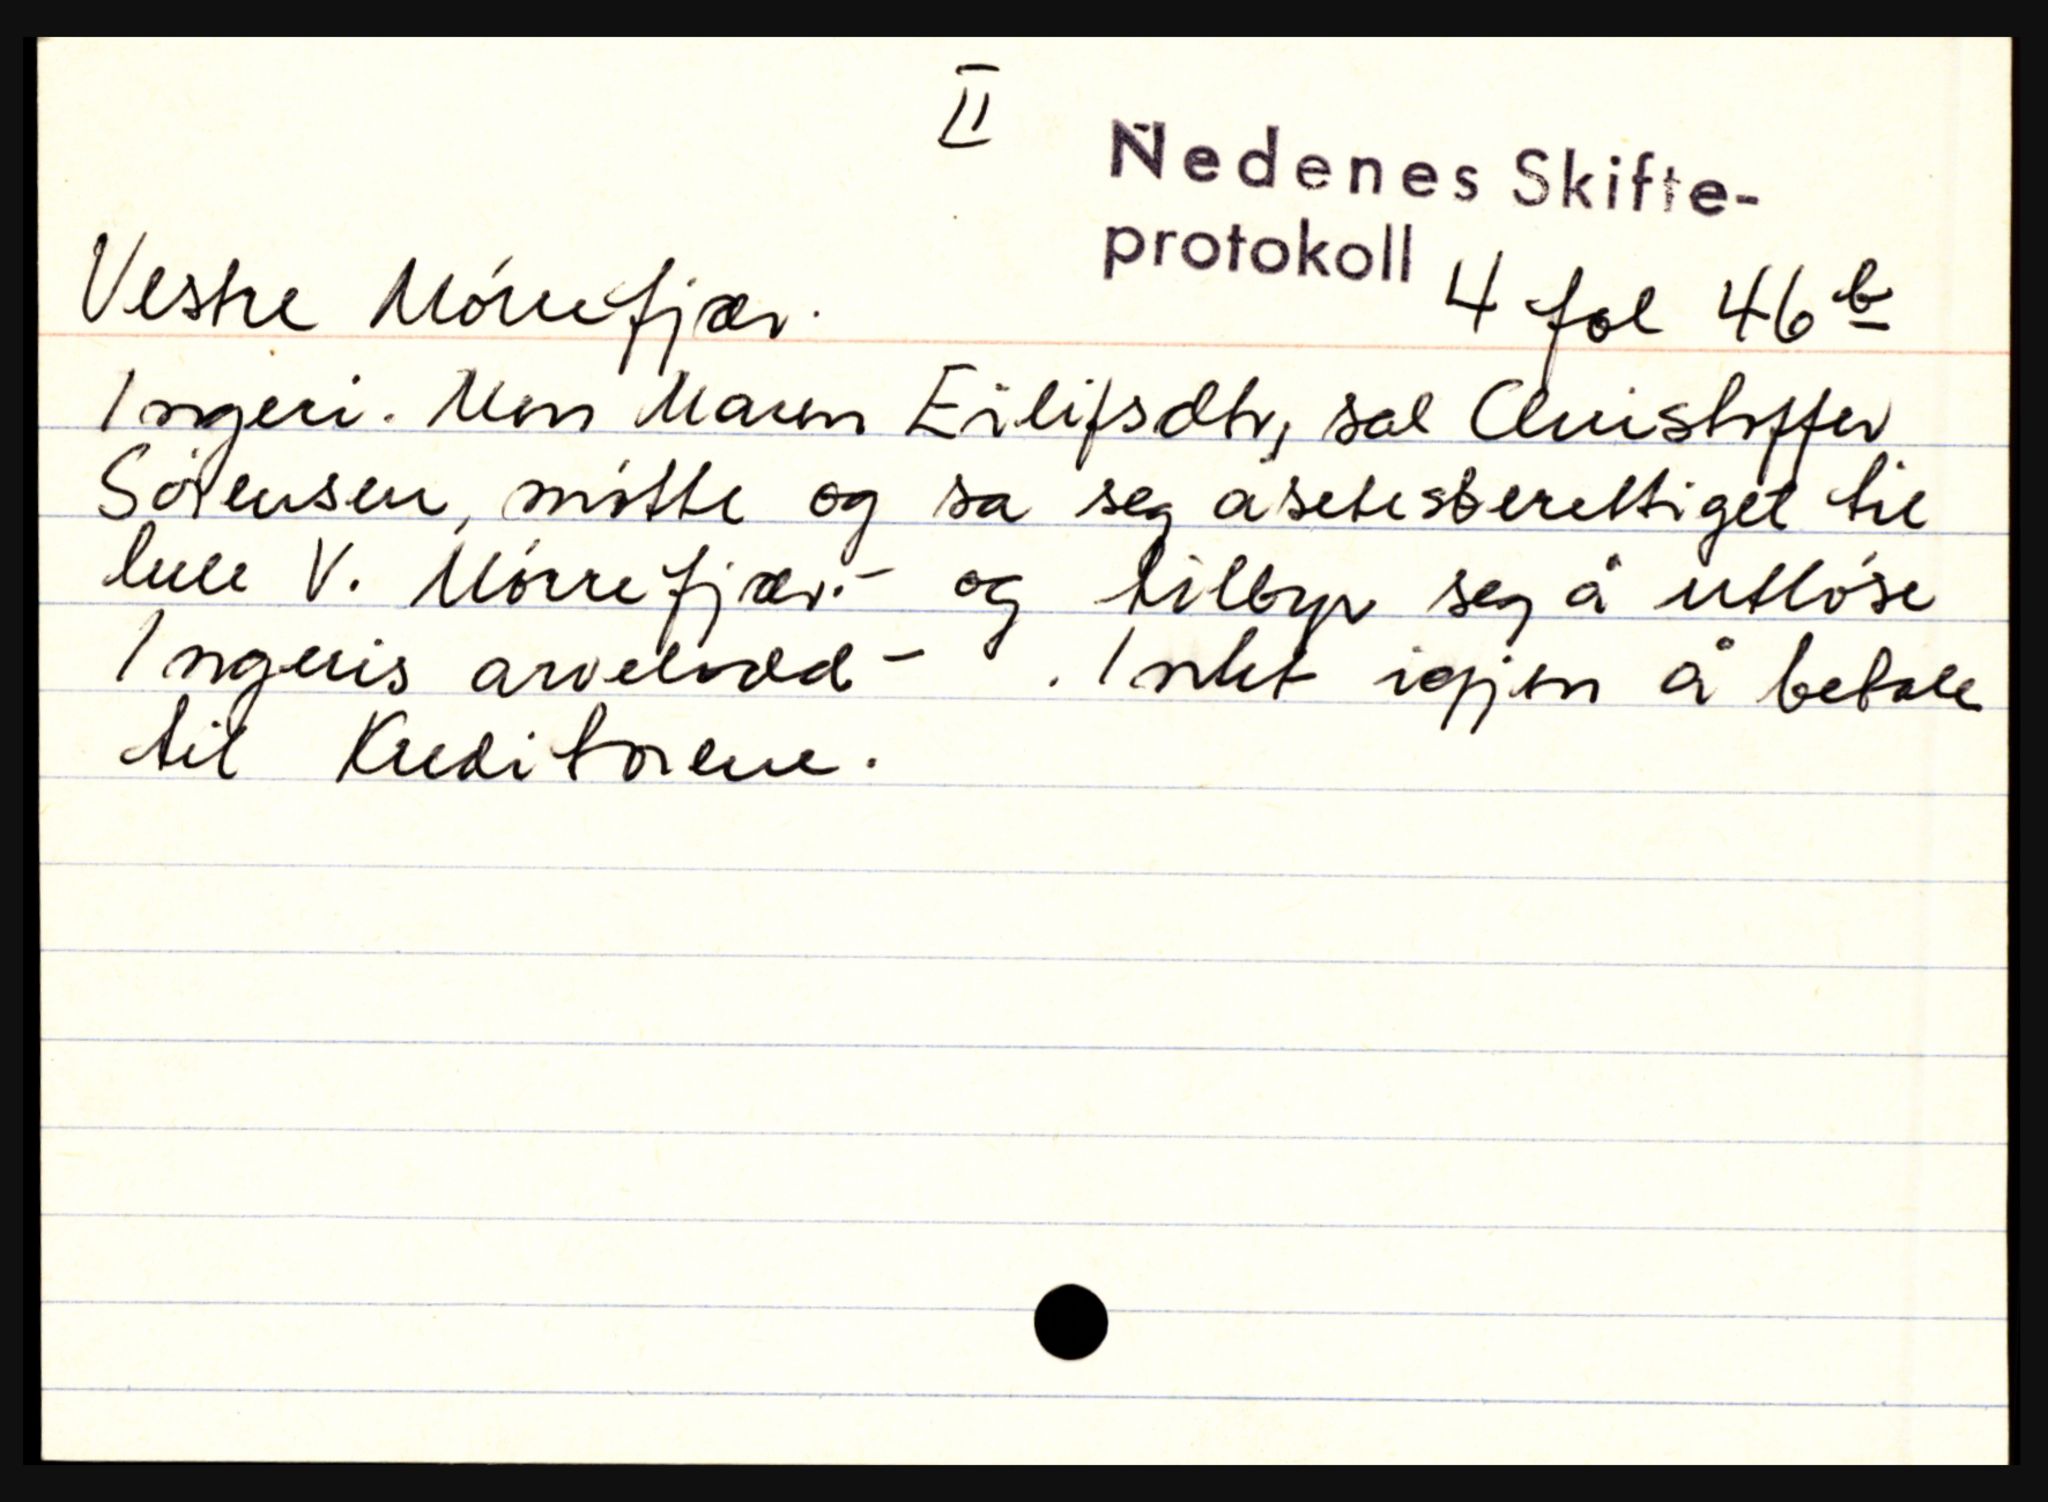 II
Nedenes Skifte-
protokoll 4 fol 46 b
Vestre Mórrefjær.
Ingeri. Men Maren Eilifsdtr, sal Christoffer
Sórensen, mótte og sa seg åsetesberettiget til
hele V. Mórrefjær.- og tilbyr seg å utlóse
Ingeris arvelodd - . Intet igjen å betale
til Kreditorene.